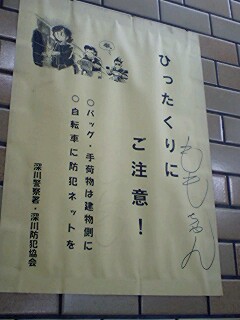 ひったくりに
ご注意！
○バッグ・手荷物は建物側に
○自転車に防犯ネットを
深川警察署・深川防犯協会